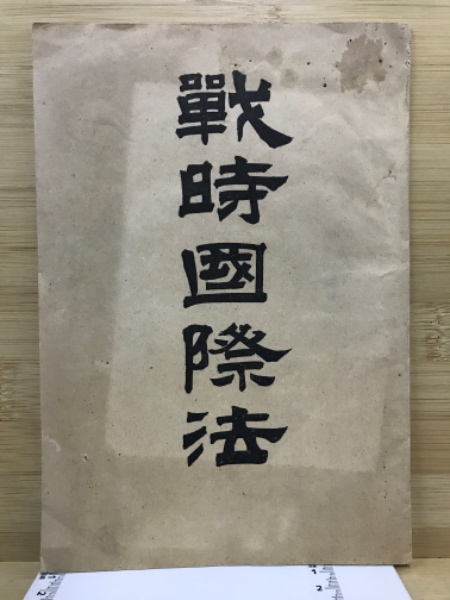 戰時國際法